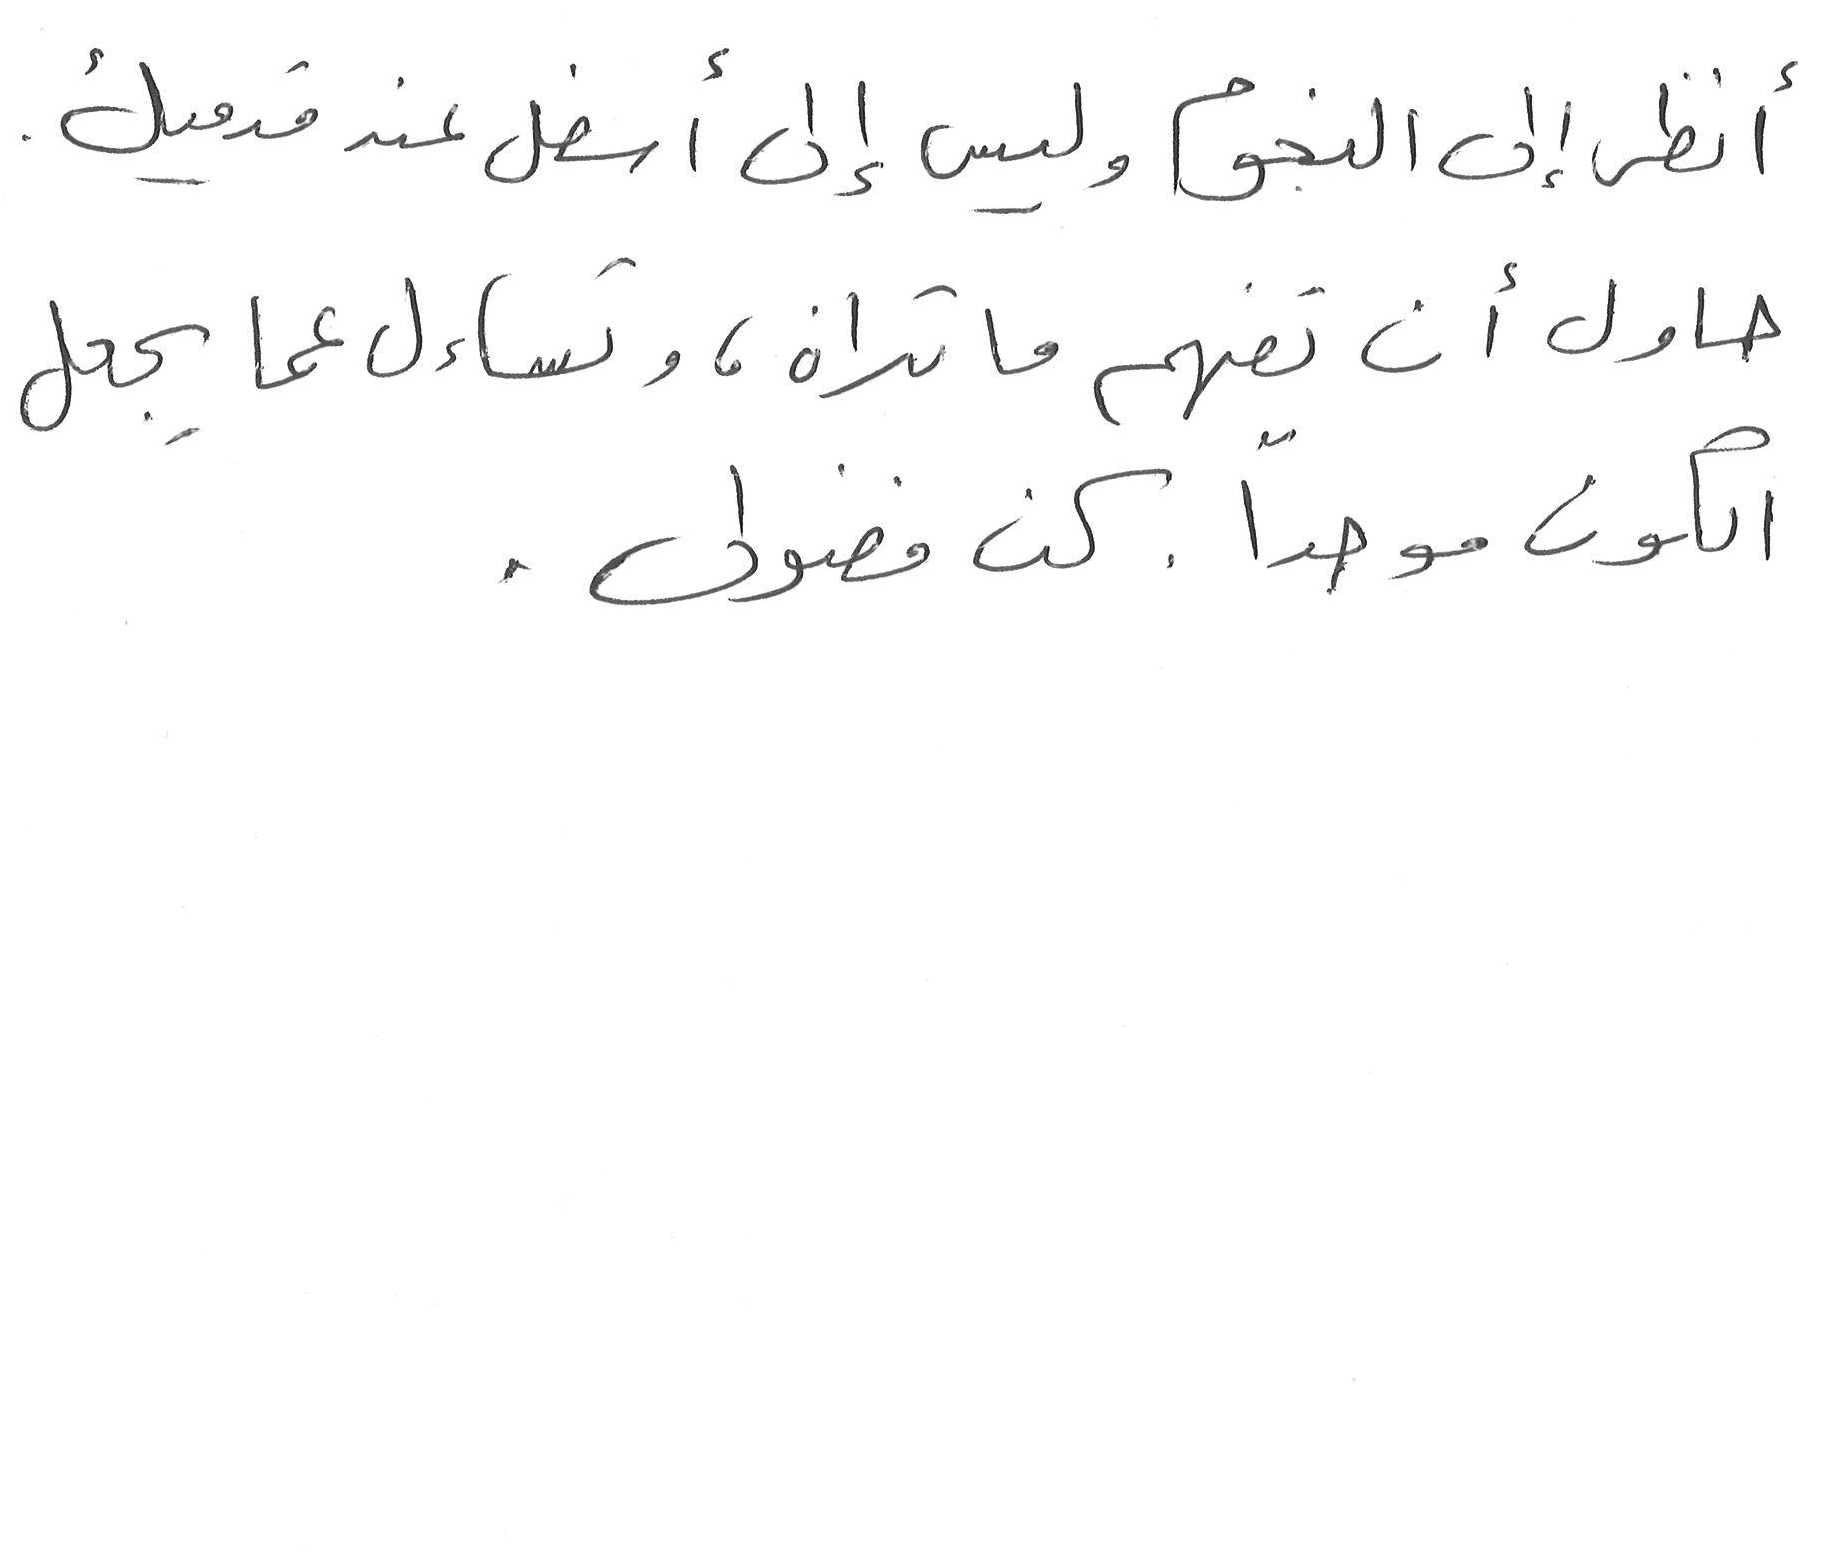 أنظر إلى النجوم وليس إلى أسفل عند قدميك.
حاول أن تفهم ما تراه، وتساءل عما يجعل
الكون موجداً. كن فضولى.